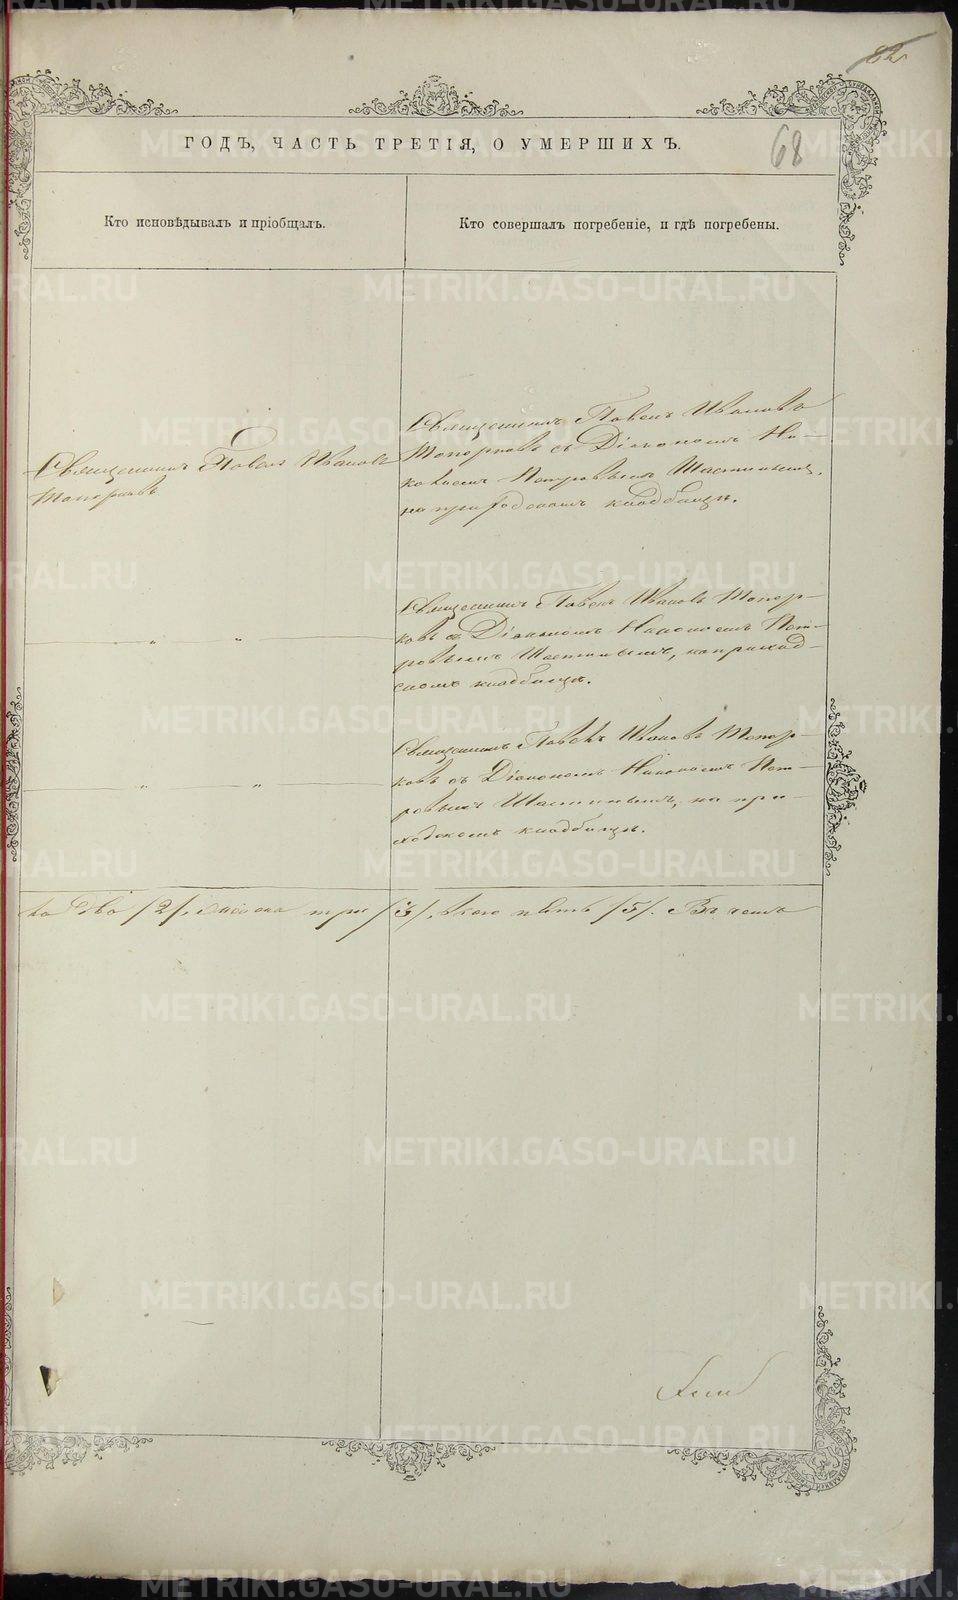 82
ГОДЪ, ЧАСТЬ ТРЕТІЯ, О УМЕРШИХЪ.
68
Кто исповѣдывалъ и пріобщалъ.
Кто совершалъ погребеніе, и гдѣ погребены.
Священникъ Павелъ Ивановъ
Топорковъ
Священникъ Павелъ Ивановъ
Топорковъ съ Діакономъ Ни-
Петровымъ
на приходскомъ кладбищѣ.
" "
Священникъ Павелъ Ивановъ Топор-
ковъ съ Діакономъ Пет-
ровымъ на приход-
скомъ кладбищѣ.
" "
Священникъ Павелъ Ивановъ Топор-
ковъ съ Діакономъ Пет-
ровымъ на при-
ходскомъ кладбищѣ.
два /2/, женска три /3/, всего пять /5/. Въ чемъ
METRIKI.GASO-URAL.RU